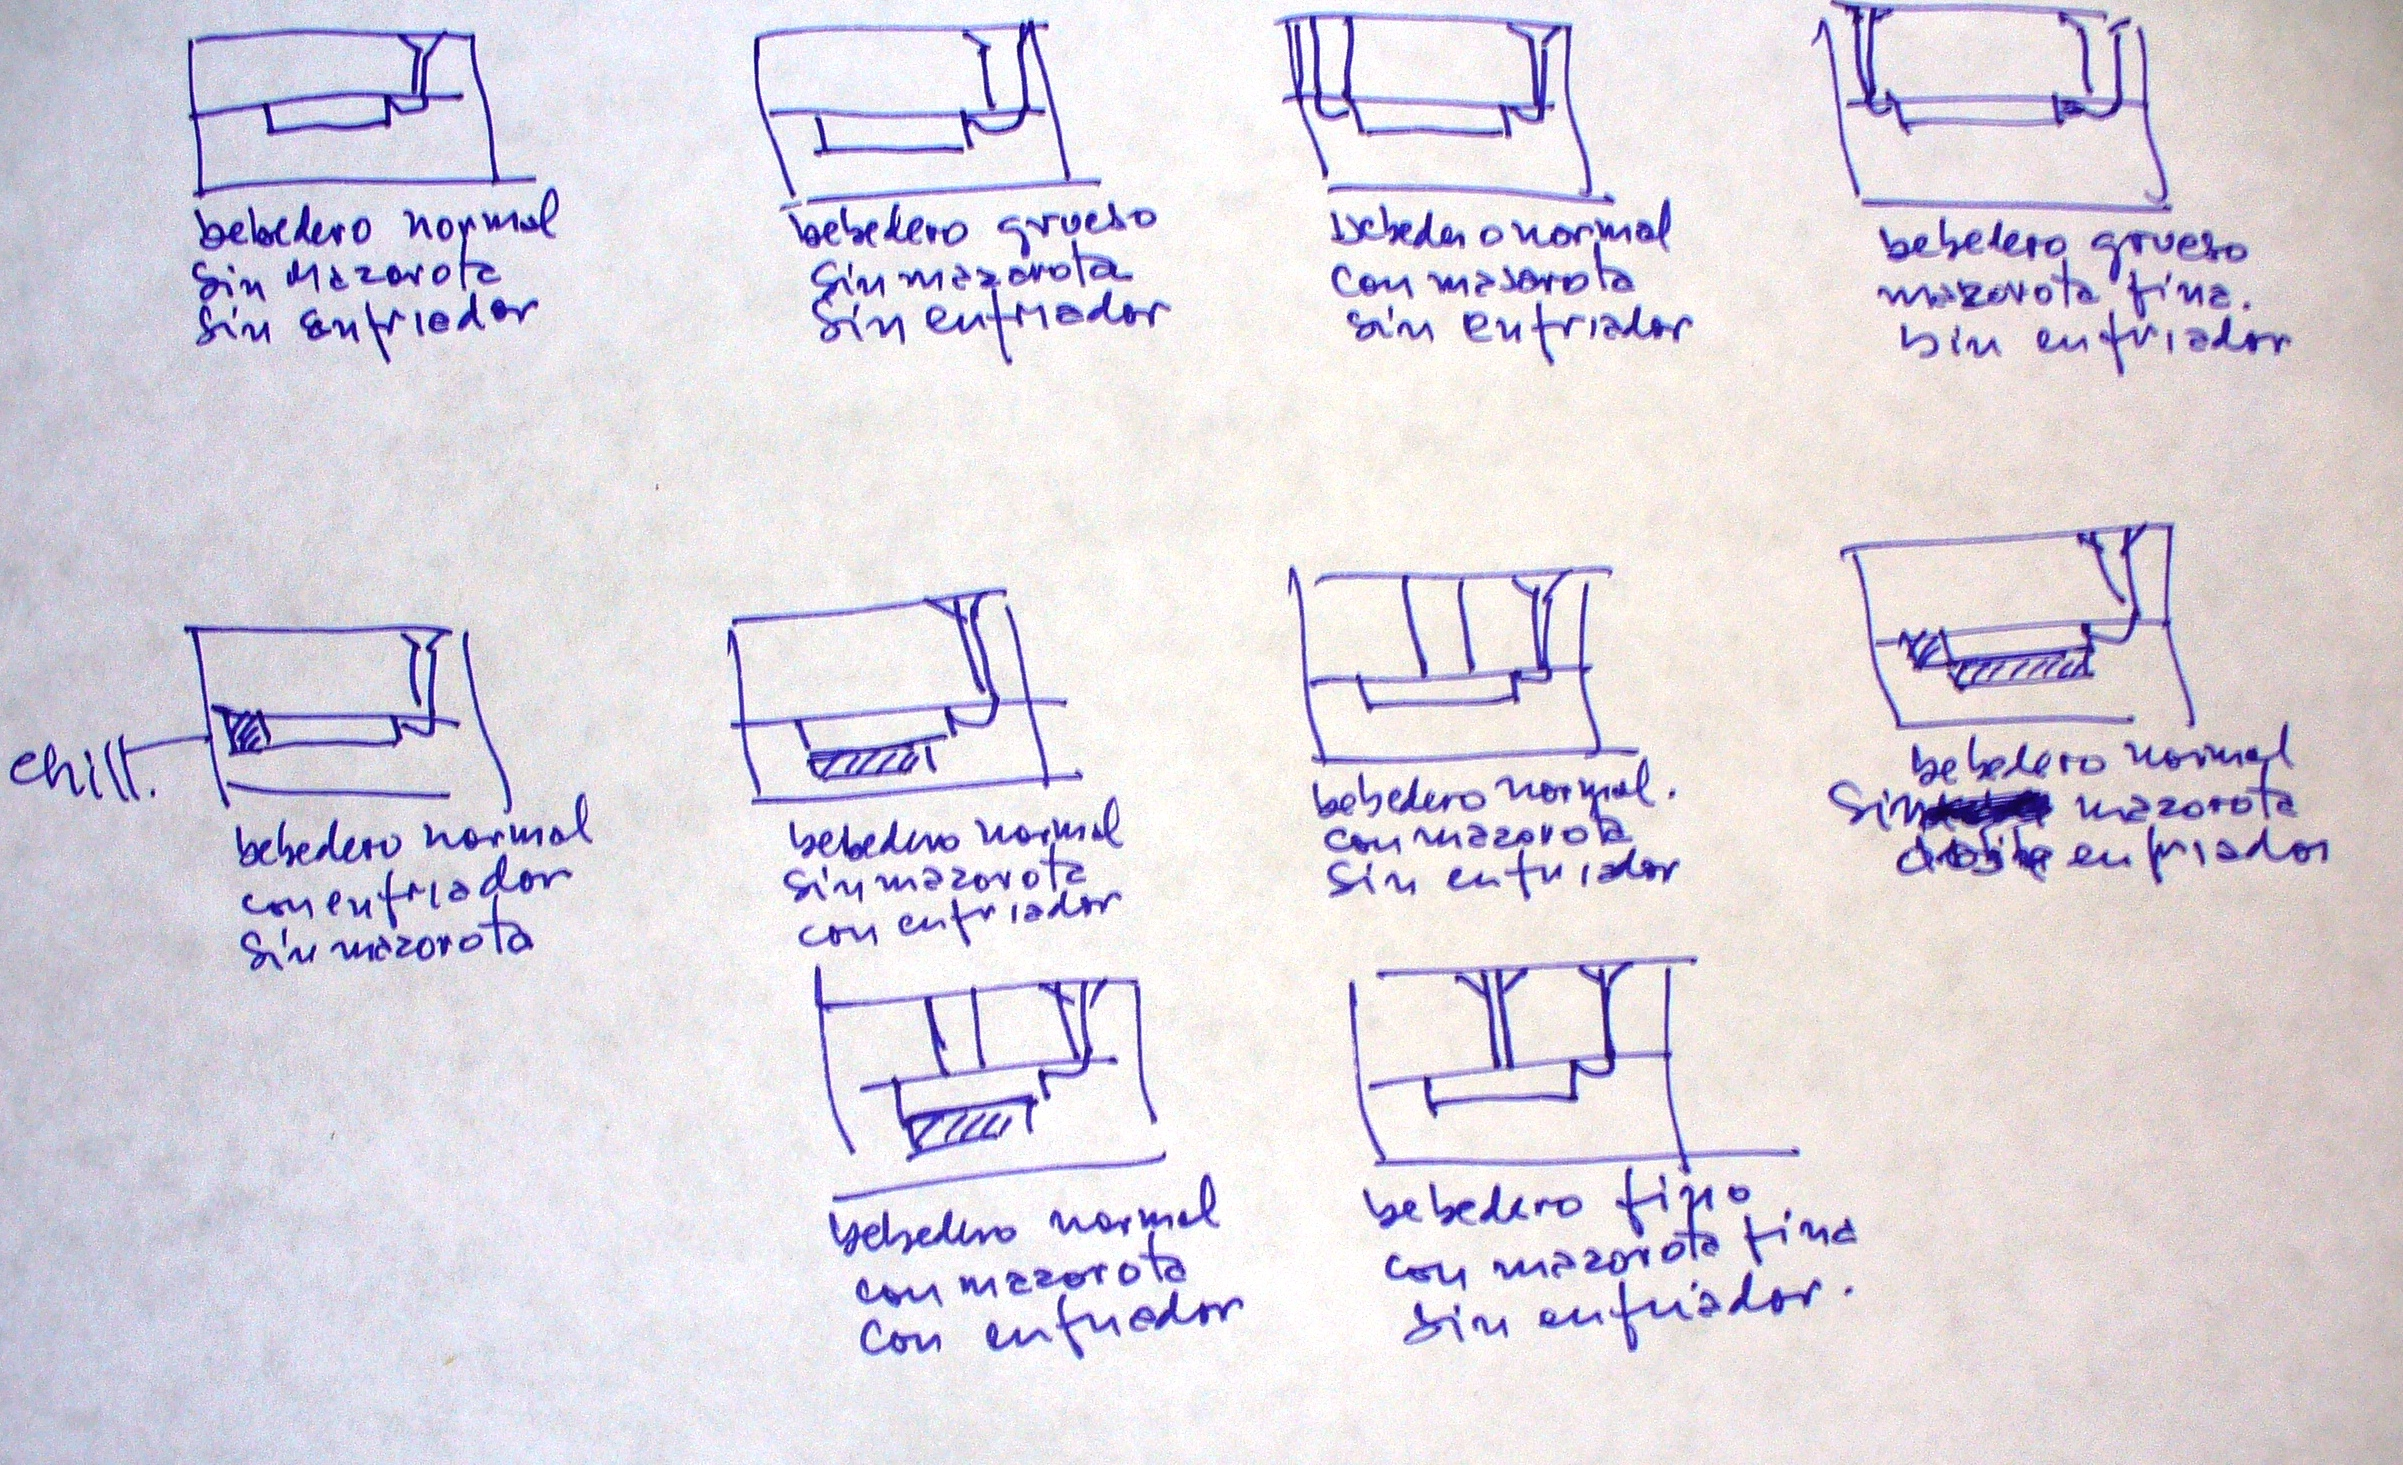 bebedero normal
Sin Mazarota
Sin Enfriador
bebedero grueso
Sin mazarota
Sin enfriador
bebedero normal
Con masarota
sin enfriador
bebedero grueso
mazarota fina.
Sin enfriador
chill.
bebedero normal
con enfriador
Sin mazarota
bebedero normal
Sin mazarota
con enfriador
bebedero normal.
con mazarota
Sin enfriador
bebedero normal
Sin mazarota
enfriador
bebedero normal
con mazarota
Con enfriador
bebedero fino
con mazarota fina
Sin enfriador.